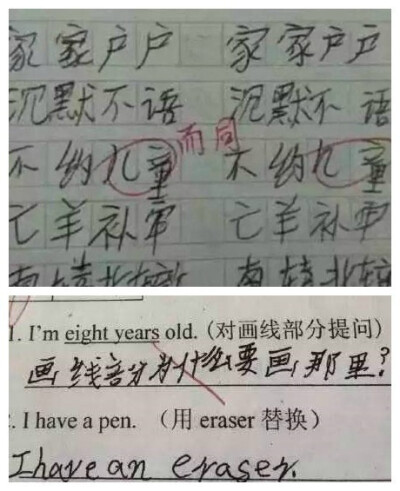 家家户户 家家户户
沉默不语 沉默不语
不约儿童 而同 不约儿童
亡羊补牢 亡羊补牢
1. I'm eight years old. (对画线部分提问)
画线部分为什么要画那里?
. I have a pen. (用 eraser 替换)
I have an eraser.